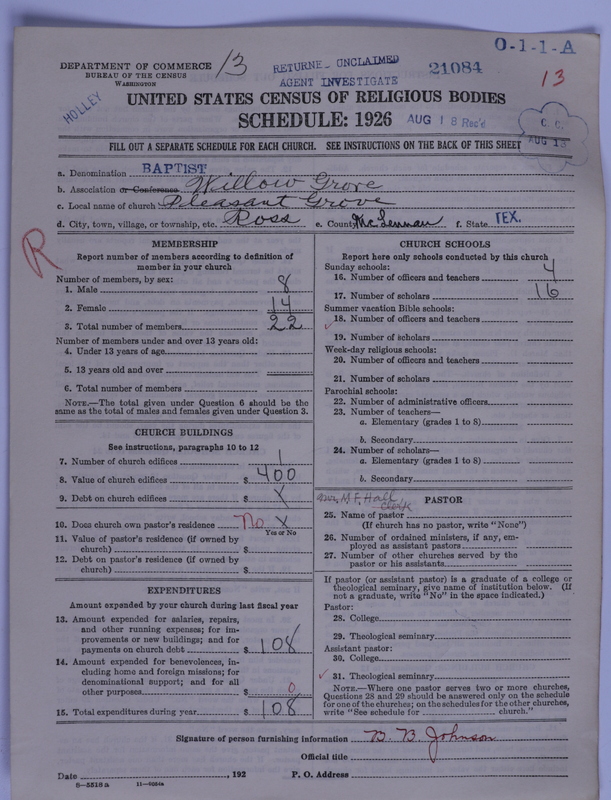 O-1-1-A
DEPARTMENT OF COMMERCE
BUREAU OF THE CENSUS
WASHINGTON
13
RETURNED UNCLAIMED
AGENT INVESTIGATE
21084
13
HOLLEY
UNITED STATES CENSUS OF RELIGIOUS BODIES
SCHEDULE: 1926
AUG 18 Rec'd
C. C.
AUG 13
FILL OUT A SEPARATE SCHEDULE FOR EACH CHURCH. SEE INSTRUCTIONS ON THE BACK OF THIS SHEET
a. Denomination BAPTIST
b. Association or Conference Willow Grove
c. Local name of church Pleasant Grove
d. City, town, village, or township, etc. Ross e. County McLennan f. State TEX.
R
MEMBERSHIP
Report number of members according to definition of
member in your church
Number of members, by sex:
1. Male 8
2. Female 14
3. Total number of members 22
Number of members under and over 13 years old:
4. Under 13 years of age
5. 13 years old and over
6. Total number of members
NOTE.—The total given under Question 6 should be the
same as the total of males and females given under Question 3.
CHURCH BUILDINGS
See instructions, paragraphs 10 to 12
7. Number of church edifices 1
8. Value of church edifices $ 400
9. Debt on church edifices $ X
10. Does church own pastor's residence No X
Yes or No
11. Value of pastor's residence (if owned by
church) $
12. Debt on pastor's residence (if owned by
church) $
EXPENDITURES
Amount expended by your church during last fiscal year
13. Amount expended for salaries, repairs,
and other running expenses; for im-
provements or new buildings; and for
payments on church debt $ 108
14. Amount expended for benevolences, in-
cluding home and foreign missions; for
denominational support; and for all
other purposes $ 0
15. Total expenditures during year $ 108
CHURCH SCHOOLS
Report here only schools conducted by this church
Sunday schools:
16. Number of officers and teachers 4
17. Number of scholars 16
Summer vacation Bible schools:
18. Number of officers and teachers
19. Number of scholars
Week-day religious schools:
20. Number of officers and teachers
21. Number of scholars
Parochial schools:
22. Number of administrative officers
23. Number of teachers—
a. Elementary (grades 1 to 8)
b. Secondary
24. Number of scholars—
a. Elementary (grades 1 to 8)
b. Secondary
Mrs. M. F. Hall
Clerk
PASTOR
25. Name of pastor
(If church has no pastor, write "None")
26. Number of ordained ministers, if any, em-
ployed as assistant pastors
27. Number of other churches served by the
pastor or his assistants
If pastor (or assistant pastor) is a graduate of a college or
theological seminary, give name of institution below. (If
not a graduate, write "No" in the space indicated.)
Pastor:
28. College
29. Theological seminary
Assistant pastor:
30. College
31. Theological seminary
NOTE.—Where one pastor serves two or more churches,
Questions 28 and 29 should be answered only on the schedule
for one of the churches; on the schedules for the other churches,
write "See schedule for church."
Signature of person furnishing information B B Johnson
Official title
Date , 192 P. O. Address
8—5518a 11—9284a